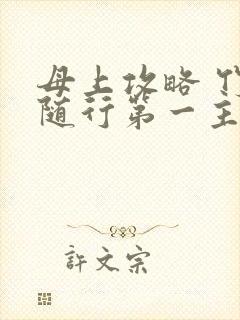 母上攻略
随行第一主
許文宗